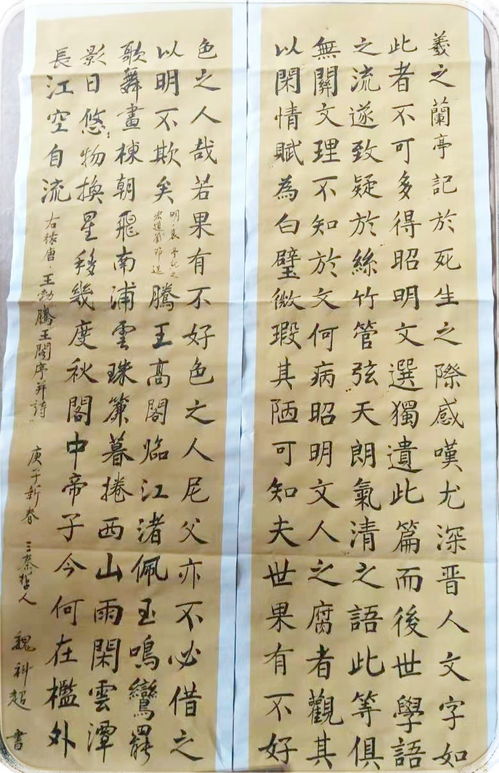 羲之蘭亭記於死生之際感嘆尤深晋人文字如
此者不可多得昭明文選獨遺此篇而後世學語
之流遂致疑於絲竹管弦天朗氣清之語此等俱
無關文理不知於文何病昭明文人之腐者觀其
以閑情賦為白璧微瑕其陋可知夫世果有不好
色之人哉若果有不好色之人尼父亦不必借之
以明不欺矣騰王高閣臨江渚佩玉鳴鸞罷
歌舞畫棟朝飛南浦雲珠簾暮捲西山雨閑雲潭
影日悠物換星移幾度秋閣中帝子今何在檻外
長江空自流右錄唐王勃騰王閣序并詩 庚子新春 三秦哲人 魏科超書